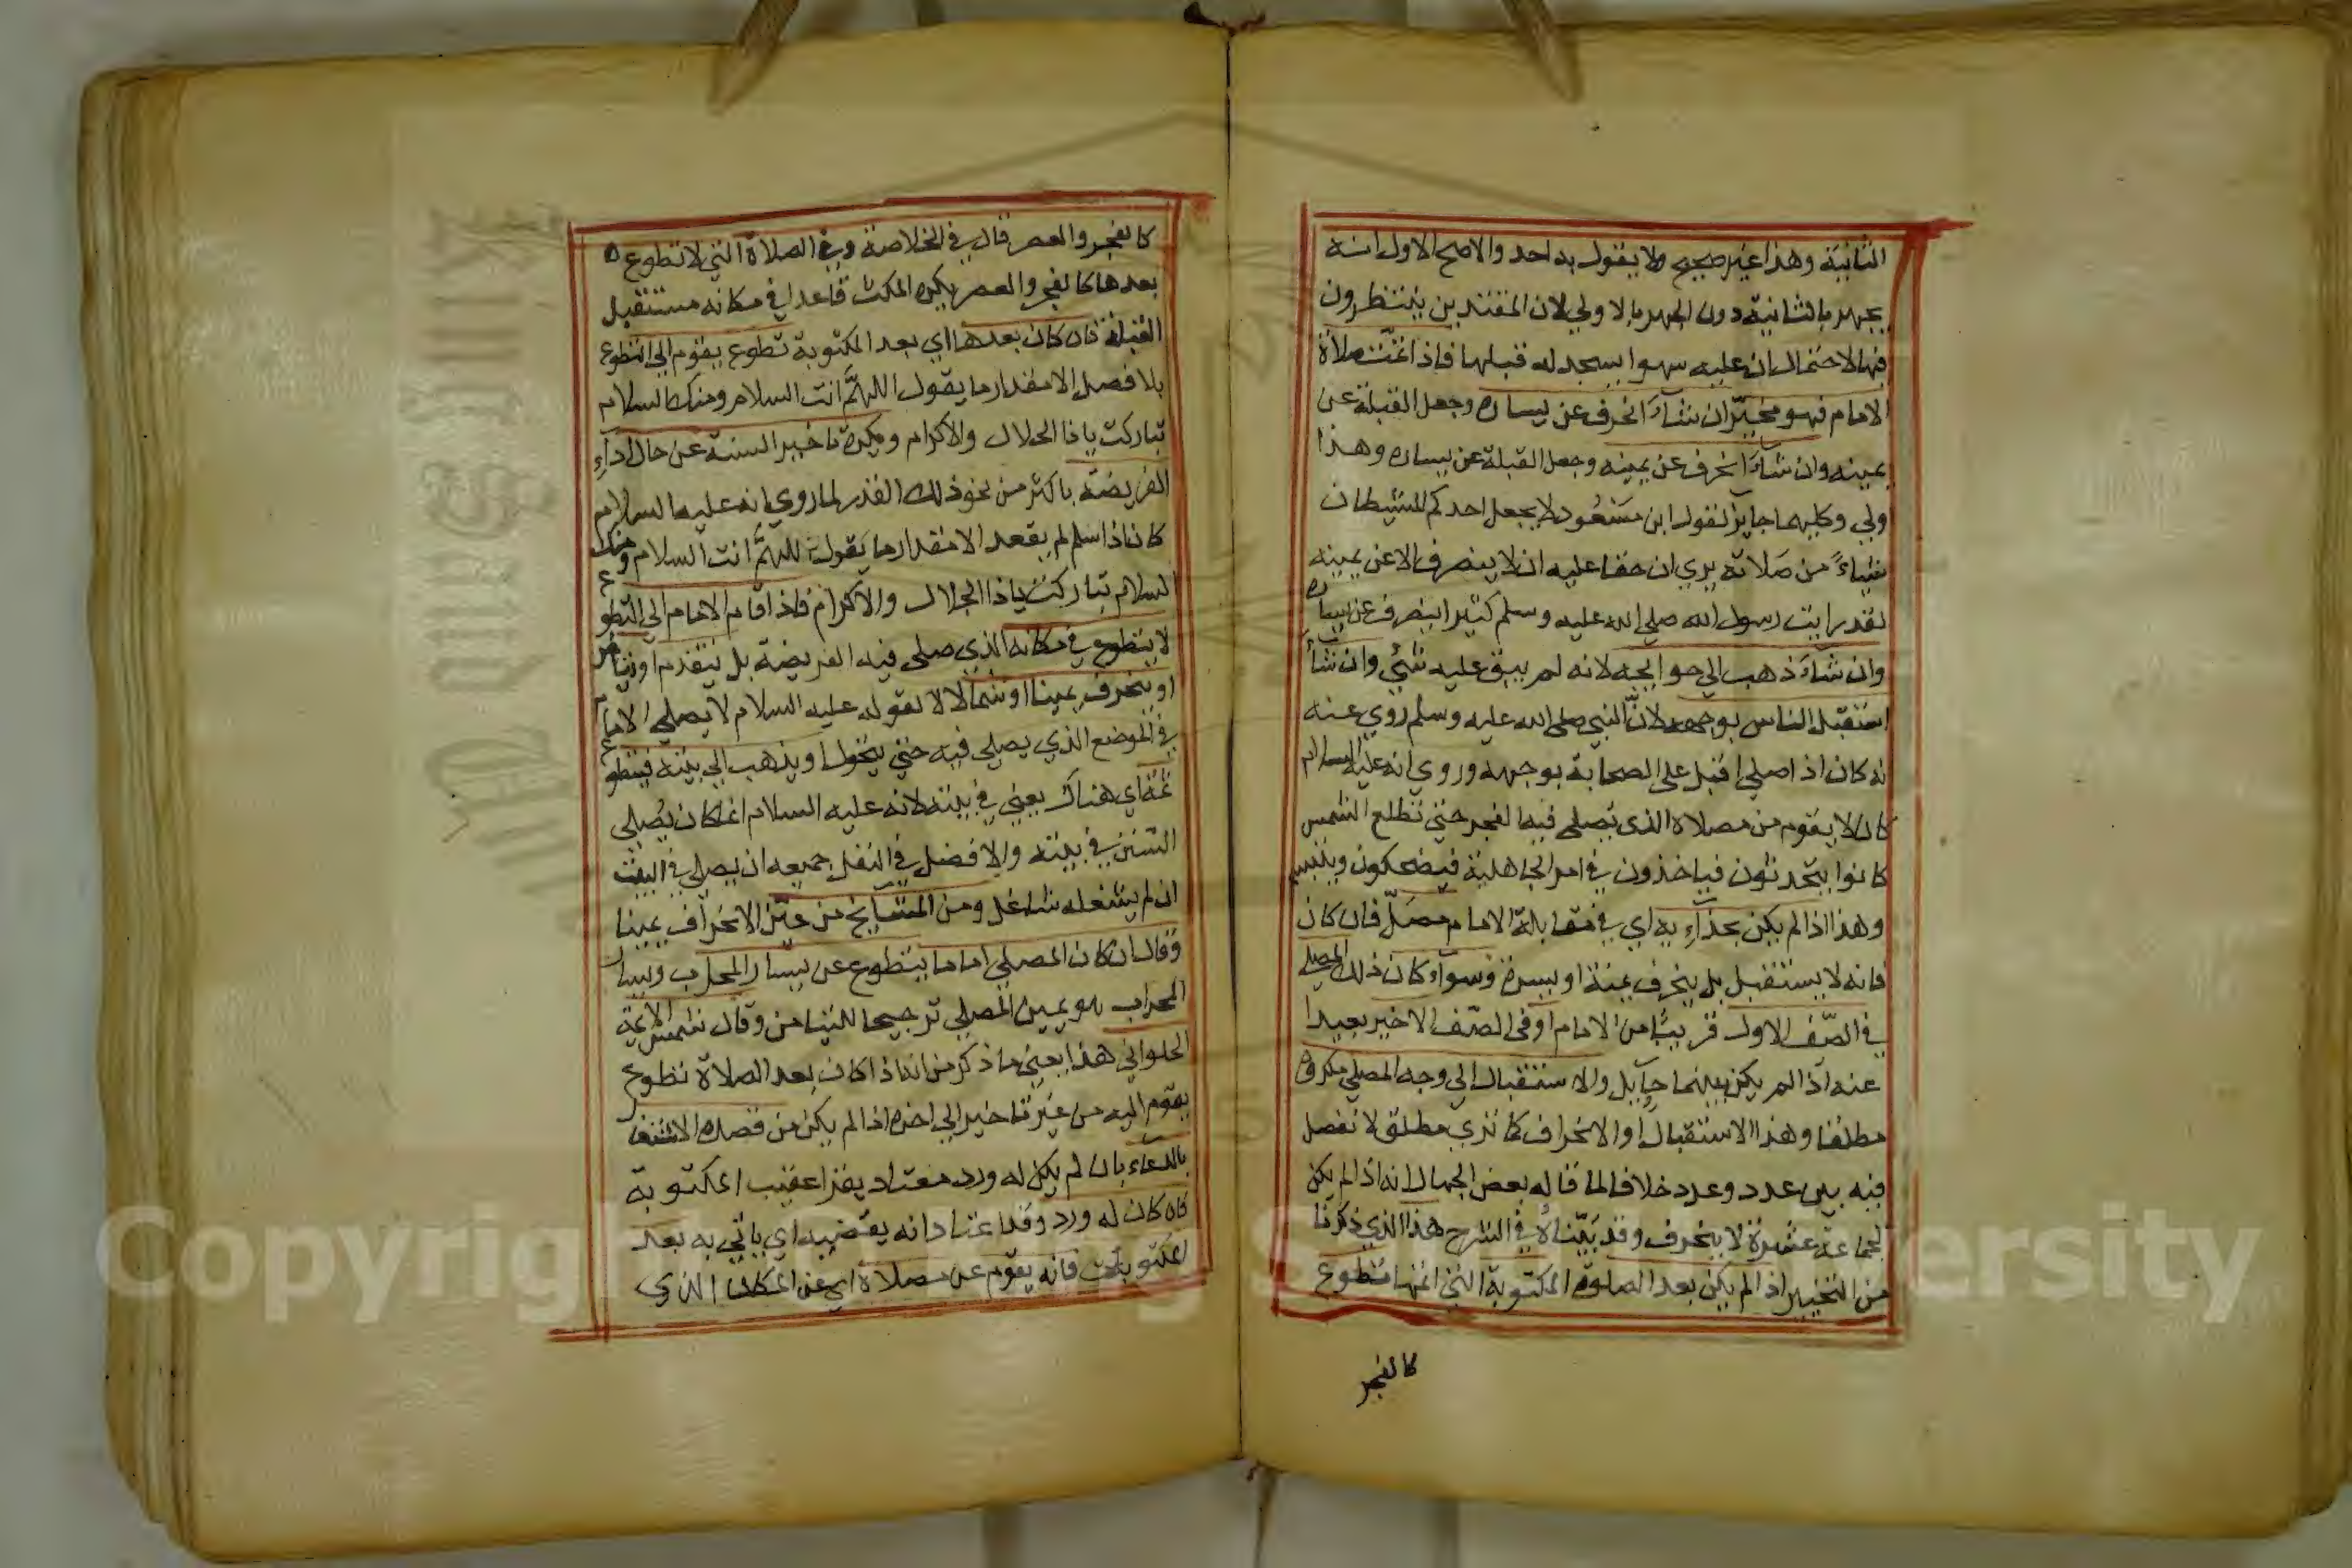 الثانية وهذا غير صحيح ولا يقول به احد والاصح الاول انه
يجهر بالثانية دون الجهر بالاولي لان المقتدين ينتظرون
فيها لاحتمال ان عليه سهوا يسجد له قبلها فاذا تمت صلاة
الامام فهو مخيّر ان شاءَ انحرف عن يساره وجعل القبلة عن
يمينه وان شاءَ انحرف عن يمينه وجعل القبلة عن يساره وهذا
ولي وكليهما جايز لقول ابن مسعُود لا يجعل احدكم للشيطان
شياءً من صَلاته يري ان حقا عليه ان لا ينصرف الا عن يمينه
لقد رايت رسول الله صلي الله عليه وسلم كثيرا ينصرف عن يساره
وان شاءَ ذهب الي حوايجه لانه لم يبق عليه شئي وان شاءَ
استقبل الناس بوجهه لانّ النبي صلي الله عليه وسلم روي عنه
نه كان اذا صلي اقبل علي الصحابة بوجهه وروي انه عليه السلام
كان لا يقوم من مصلاه الذي يصلي فيه الفجر حتي تطلع الشمس
كانوا يتحدثون فياخذون في امر الجاهلية فيضحكون ويتبسم
وهذا اذا لم يكن بحذآءِ يه اي في مقابلة الامام مصَلّ فان كان
فانه لا يستقبل بل ينحرف يمنة او يسرة وسوآء كان ذلك المصلي
في الصّف الاول قريبًا من الامام او في الصّف الاخير بعيدا
عنه اذا لم يكن بينهما حآيل والاستقبال الي وجه المصلي مكروه
مطلقا وهذا الاستقبال او الانحراف كما تري مطلق لا تفصل
فيه بين عدد وعدد خلافا لما قاله بعض الجهال انه اذا لم يكن
لجماعة عشرة لا ينحرف وقد بيّناهُ في الشرح هذا الذي ذكرنا
من التخيير اذا لم يكن بعد الصلوة المكتوبة التي اتمها تطوع
كالفجر
كالفجر والعصر قال في الخلاصة وفي الصلاة التي لا تطوع
بعدها كالفجر والعصر يكره المكث قاعدا في مكانه مستقبل
القبلة فان كان بعدها اي بعد المكتوبة تطوع يقوم الي التطوع
بلا فصل الا مقدار ما يقول اللهمَّ انت السلام ومنك السلام
تباركت ياذا الجلال والاكرام ويكره تاخير السنة عن حال ادآءِ
الفريضة باكثر من نحو ذلك القدر لما روي انه عليه السلام
كان اذا سلم لم يقعد الا مقدار ما يقول اللهمَّ انت السلام ومنك
السلام تباركت ياذا الجلال والاكرام فاذا قام الامام الي التطوع
لا يتطوع في مكانه الذي صلي فيه الفريضة بل يتقدم او يتاخر
او ينحرف يمينا او شمالا لقوله عليه السلام لا يصلي الامام
في الموضع الذي يصلي فيه حتي يتحول او يذهب الي بيته فيتطوع
ثمّه اي هناك يعني في بيته لانه عليه السلام انما كان يُصلي
السّنن في بيته والافضل في النفل جميعه ان يصلي في البيت
ان لم يشغله شاغل ومن المشايخ من عيّن الانحراف يمينا
وقال ان كان المصلي اماما يتطوع عن يسار المحراب ويسار
المحراب هو يمين المصلي ترجيحا للتيامن وقال شمس الايمة
الحلواني هذا يعني ما ذكر من انه اذا كان بعد الصلاة تطوع
يقوم اليه من غير تاخير الي اخره اذا لم يكن من قصده الاشتغال
بالدعاء بان لم يكن له ورد معتاد يقرا عقيب المكتوبة
فان كان له ورد وقد اعتاد انه يقضيه اي ياتي به بعد
المكتوبات فانه يقوم عن مصلاه اي عن المكان الذي